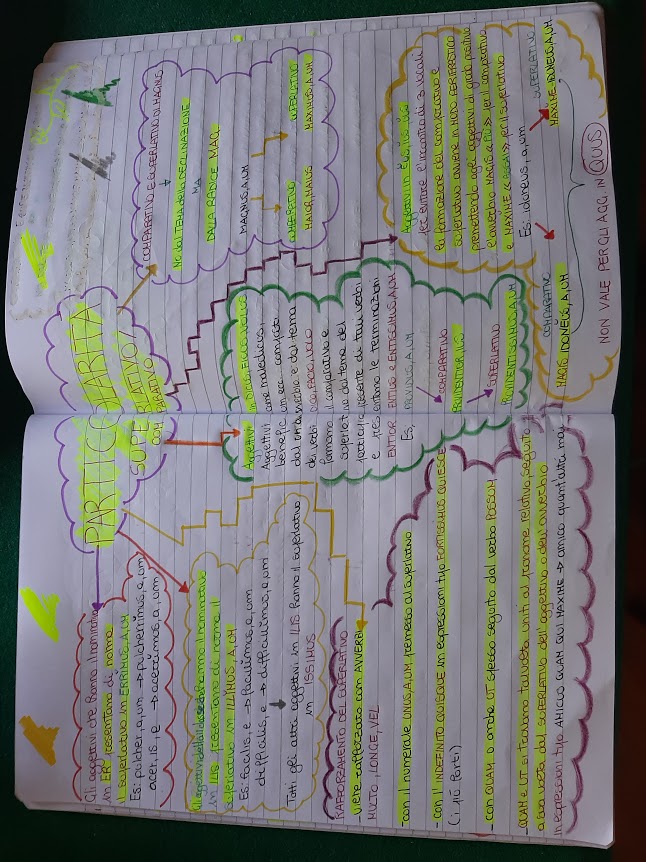 PARTICOLARITÀ
SUPERLATIVO/
COMPARATIVO
Gli aggettivi che hanno il nominativo
in ER presentano di norma
il superlativo in ERRIMUS, A, UM
Es: pulcher, a, um → pulcherrimus, a, um
acer, is, e → acerrimus, a, um
in ILIS presentano di norma il
superlativo in ILLIMUS, A, UM
Es: facilis, e → facillimus, a, um
difficilis, e → difficillimus, a, um
Tutti gli altri aggettivi in ILIS hanno il superlativo
in ISSIMUS
RAFFORZAMENTO DEL SUPERLATIVO
- viene rafforzato con AVVERBI
MULTO, LONGE, VEL
- con il numerale UNUS, A, UM premesso al superlativo
- con l'INDEFINITO QUISQUE in espressioni tipo FORTISSIMUS QUISQUE
(i più forti)
- con QUAM o anche UT spesso seguito dal verbo POSSUM
QUAM e UT si trovano talvolta uniti al pronome relativo seguito
a sua volta dal superlativo dell'aggettivo o dell'avverbio
in espressioni tipo AMICUS QUAM QUI MAXIME → amico quant'altri mai
COMPARATIVO E SUPERLATIVO DI MAGNUS
No dal TEMA della DECLINAZIONE
MA
DALLA RADICE MAG-
MAGNUS, A, UM
COMPARATIVO SUPERLATIVO
MAIOR, MAIUS MAXIMUS, A, UM
Aggettivi in DICUS, FICUS, VOLUS
Aggettivi come maledicus,
dal verbo e dal tema
dei verbi DICO, FACIO, VOLO
formano il comparativo e
superlativo dal tema del
participio presente di tali verbi
e presentano le terminazioni
ENTIOR ENTIUS e ENTISSIMUS, A, UM
Es,
PROVIDUS, A, UM
→ COMPARATIVO
PROVIDENTIOR, IUS
→ SUPERLATIVO
PROVIDENTISSIMUS, A, UM
Aggettivi in EUS, IUS, UUS
per evitare l'incontro di 3 vocali
la formazione del comparativo e
superlativo avviene in modo PERIFRASTICO
premettendo agli aggettivi di grado positivo
l'avverbio MAGIS << PIÙ >> per il comparativo
e MAXIME << ASSAI >> per il superlativo
Es: idoneus, a, um
COMPARATIVO SUPERLATIVO
MAGIS IDONEUS, A, UM MAXIME IDONEUS, A, UM
NON VALE PER GLI AGG. IN QUUS